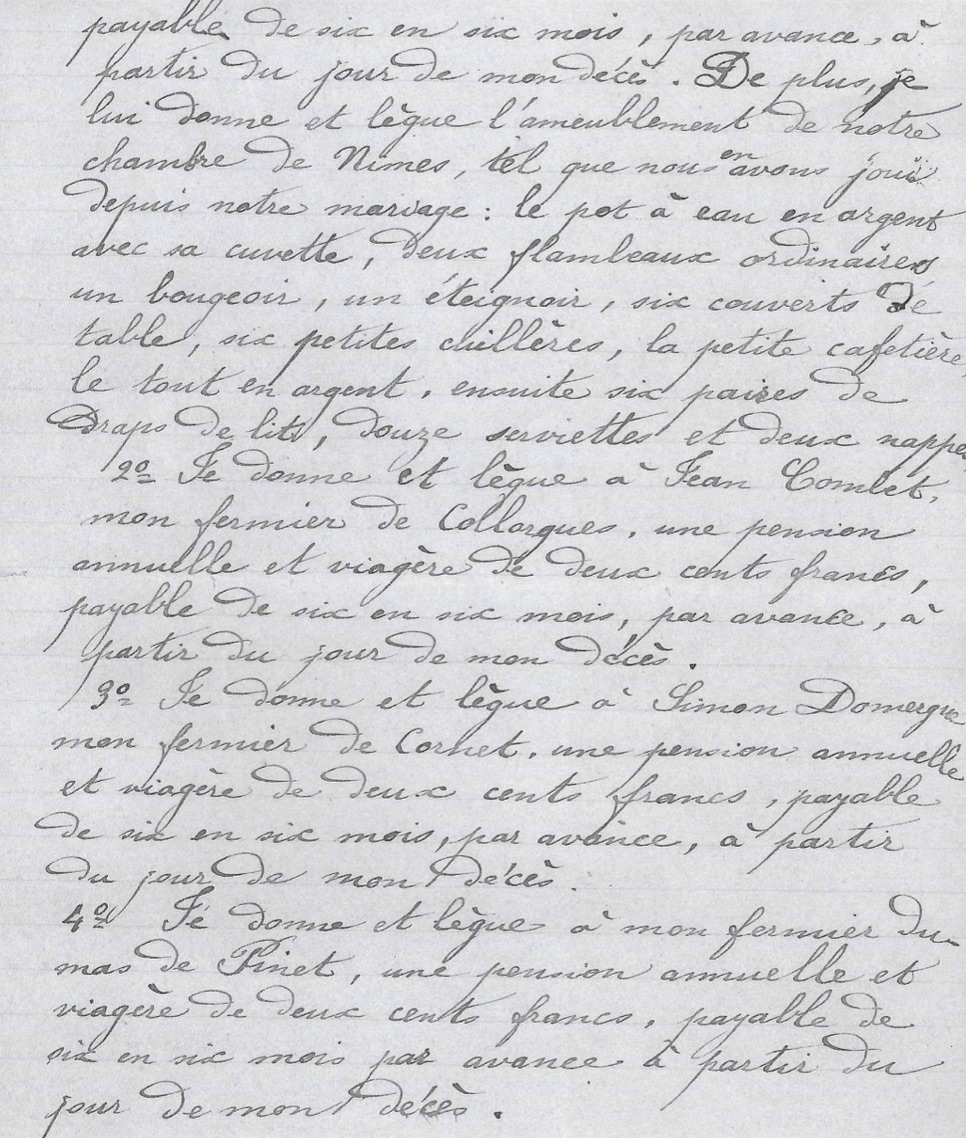 payable de six en six mois, par avance, à
partir du jour de mon décès. De plus, je
lui donne et lègue l'ameublement de notre
chambre de Nimes, tel que nous en avons joui
depuis notre mariage : le pot à eau en argent
avec sa cuvette, deux flambeaux ordinaires
un bougeoir, un éteignoir, six couverts de
table, six petites cuillères, la petite cafetière,
le tout en argent, ensuite six paires de
draps de lits, douze serviettes et deux nappes
2º Je donne et lègue à Jean Comlet,
mon fermier de Collorgues, une pension
annuelle et viagère de deux cents francs,
payable de six en six mois, par avance, à
partir du jour de mon décès.
3º Je donne et lègue à Simon Domergue
mon fermier de Cornet, une pension annuelle
et viagère de deux cents francs, payable
de six en six mois, par avance, à partir
du jour de mon décès.
4º Je donne et lègue à mon fermier Du-
mas de Pinet, une pension annuelle et
viagère de deux cents francs, payable de
six en six mois par avance à partir du
jour de mon décès.